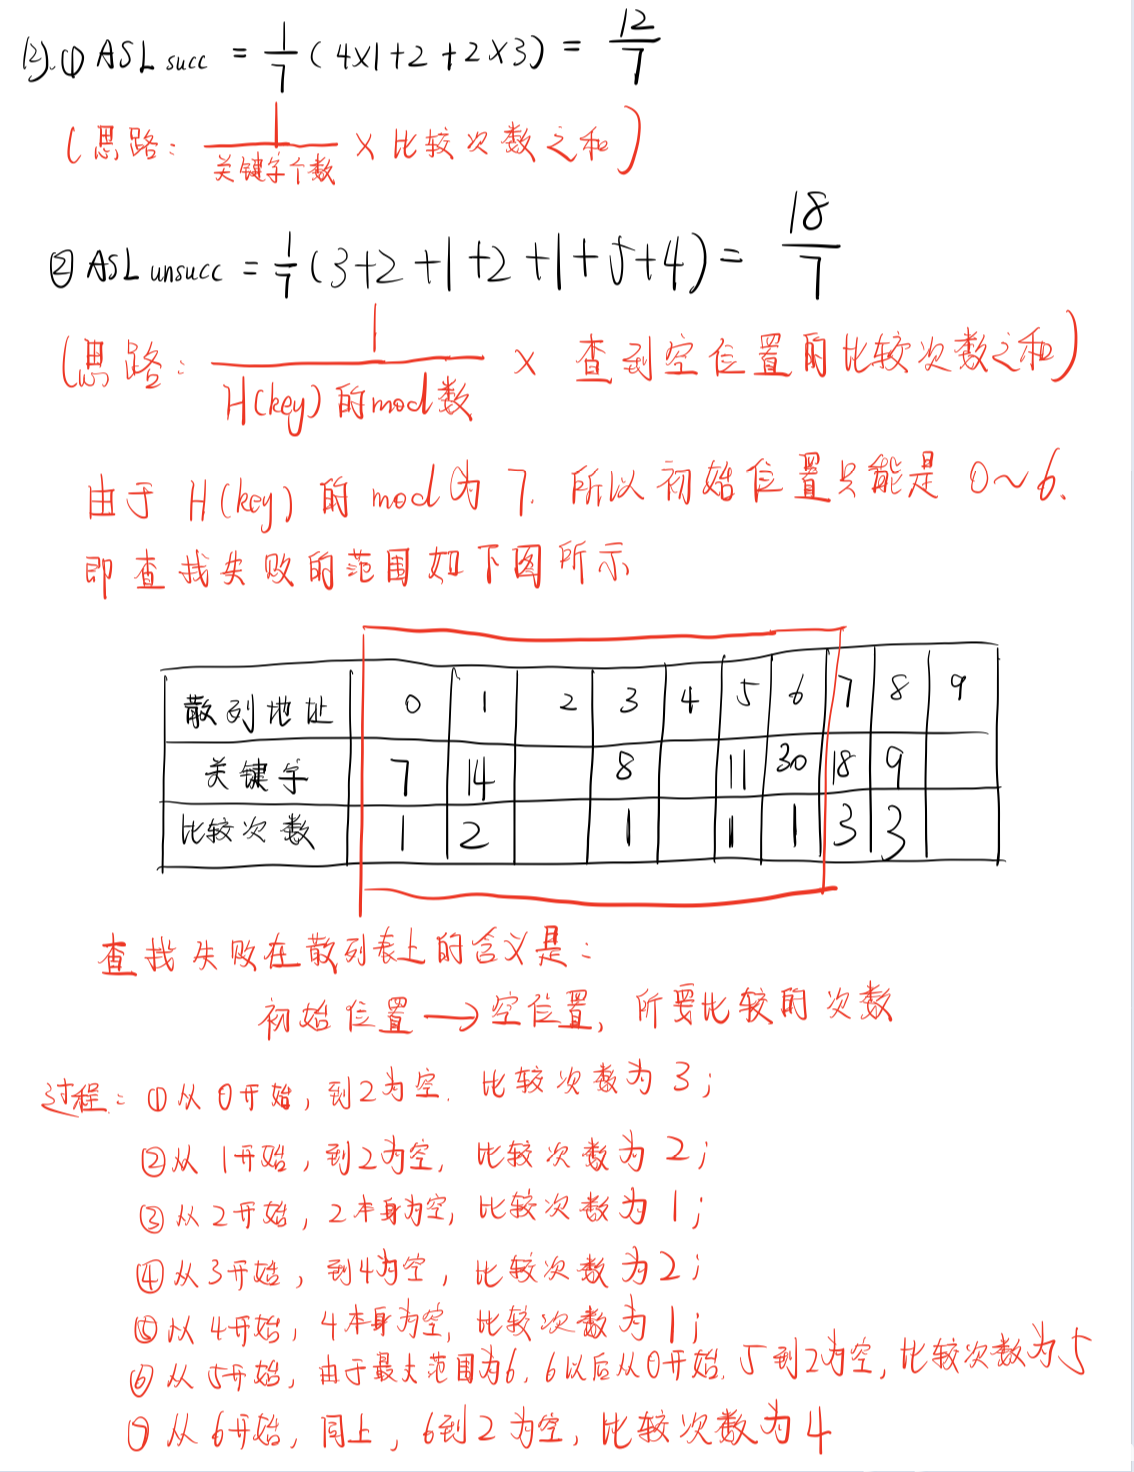 (2).① ASL succ = 1/7 (4×1+2+2×3) = 12/7
(思路: 1/关键字个数 × 比较次数之和)
② ASL unsucc = 1/7 (3+2+1+2+1+5+4) = 18/7
(思路: 1/H(key)的mod数 × 查到空位置的比较次数之和)
由于 H(key) 的 mod 为 7. 所以初始位置只能是 0~6.
即查找失败的范围如下图所示
散列地址 0 1 2 3 4 5 6 7 8 9
关键字 7 14 8 11 30 18 9
比较次数 1 2 1 1 1 3 3
查找失败在散列表上的含义是:
初始位置→空位置, 所要比较的次数
过程: ①从0开始, 到2为空. 比较次数为3;
②从1开始, 到2为空, 比较次数为2;
③从2开始, 2本身为空, 比较次数为1;
④从3开始, 到4为空, 比较次数为2;
⑤从4开始, 4本身为空, 比较次数为1;
⑥从5开始, 由于最大范围为6, 6以后从0开始. 5到2为空, 比较次数为5
⑦从6开始, 同上, 6到2为空, 比较次数为4